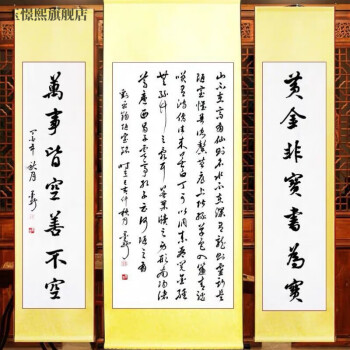 憬熙旗舰店
黄金非寶書為寶
山不在高有仙則名水不在深有龍則靈斯是
陋室惟吾德馨苔痕上階綠草色入簾青談
笑有鴻儒往來無白丁可以調素琴閱金經
無絲竹之亂耳無案牘之勞形南陽諸
葛廬西蜀子雲亭孔子云何陋之有
劉禹錫陋室銘
萬事皆空善不空
秋月